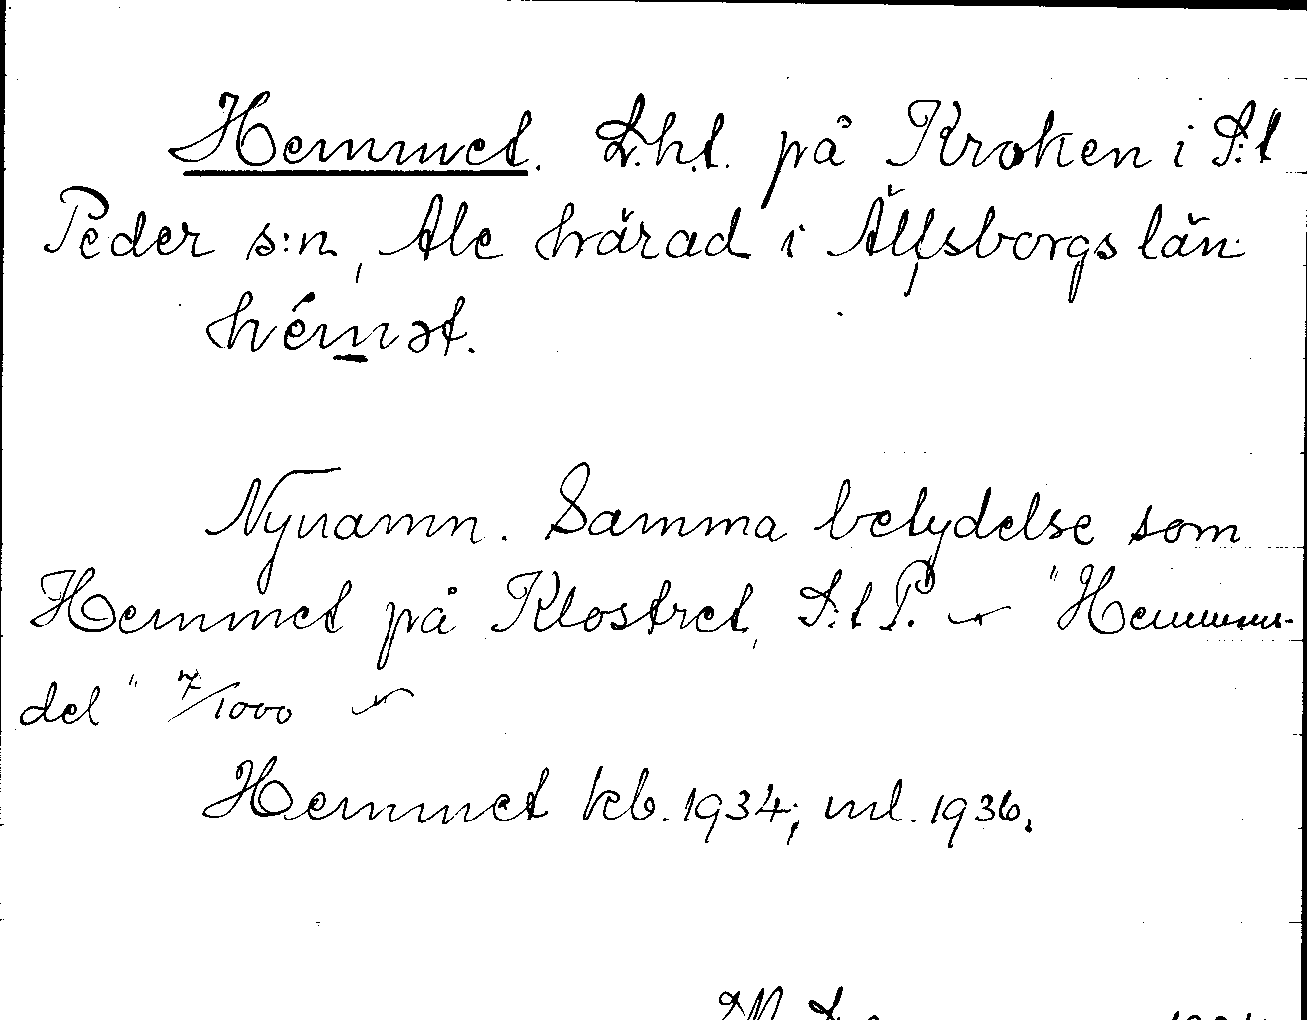 Hemmet. L.h.t. på Kroken i S:t
Peder s:n, Ale härad i Älfsborgs län.
hémət.
Nynamn. Samma betydelse som
Hemmet på Klostret, S:t P. "Hemmans-
del" 7/1000
Hemmet kb. 1934; ml. 1936.